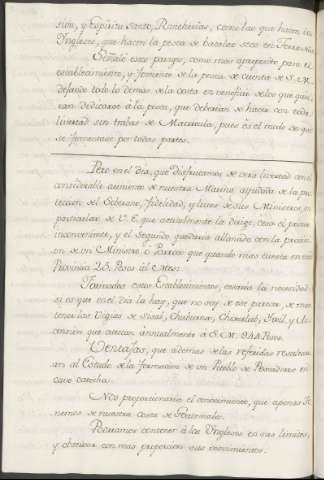 sion, y Espiritu Santo, Rancherias, como las que hacen los
Ingleses, que hacen la pesca de bacalao seco en Terra Nova
Señalé este parage, como mas aproposito para el
establecimiento, y fomento de la pesca de cuenta de S. M.
dejando todo lo demas de la costa en veneficio de los que quie-
ran dedicarse à la pesca, que deberian de hacer con toda
livertad sin trabas de Matricula, pues es el modo de que
se fomentase por todas partes.
Pero en el dia, que disfrutamos de otra livertad con el
considerable aumento de nuestra Marina ayudada de la pro
teccion del Soberano, fidelidad, y luces de sus Ministros, en
particular de V. E. que actualmente la dirige, cesa el primer
inconveniente, y el Segundo quedaria allanado con la precision
de un Ministro ò Parroco que quando mas tuviera en esta
Provincia 25 Pesos al Mes.
Formados estos Establecimientos, estaria la necesidad
si es que en el dia la hay, que no soy de este parecer, de man
tener los Vigias de Sisal, Chuburna, Chuxulub, Ixil, y As-
cension que cuestan annualmente à S. M. 944 Pesos.
Ventajas, que ademas de las referidas resultan
an al Estado de la formacion de un Pueblo de Pescadores en
cavo catoche.
Nos proporcionaria el conocimiento, que apenas te
nemos de nuestra costa de Guatemala.
Podriamos contener à los Ingleses en sus limites,
y observar con mas proporcion sus movimientos.